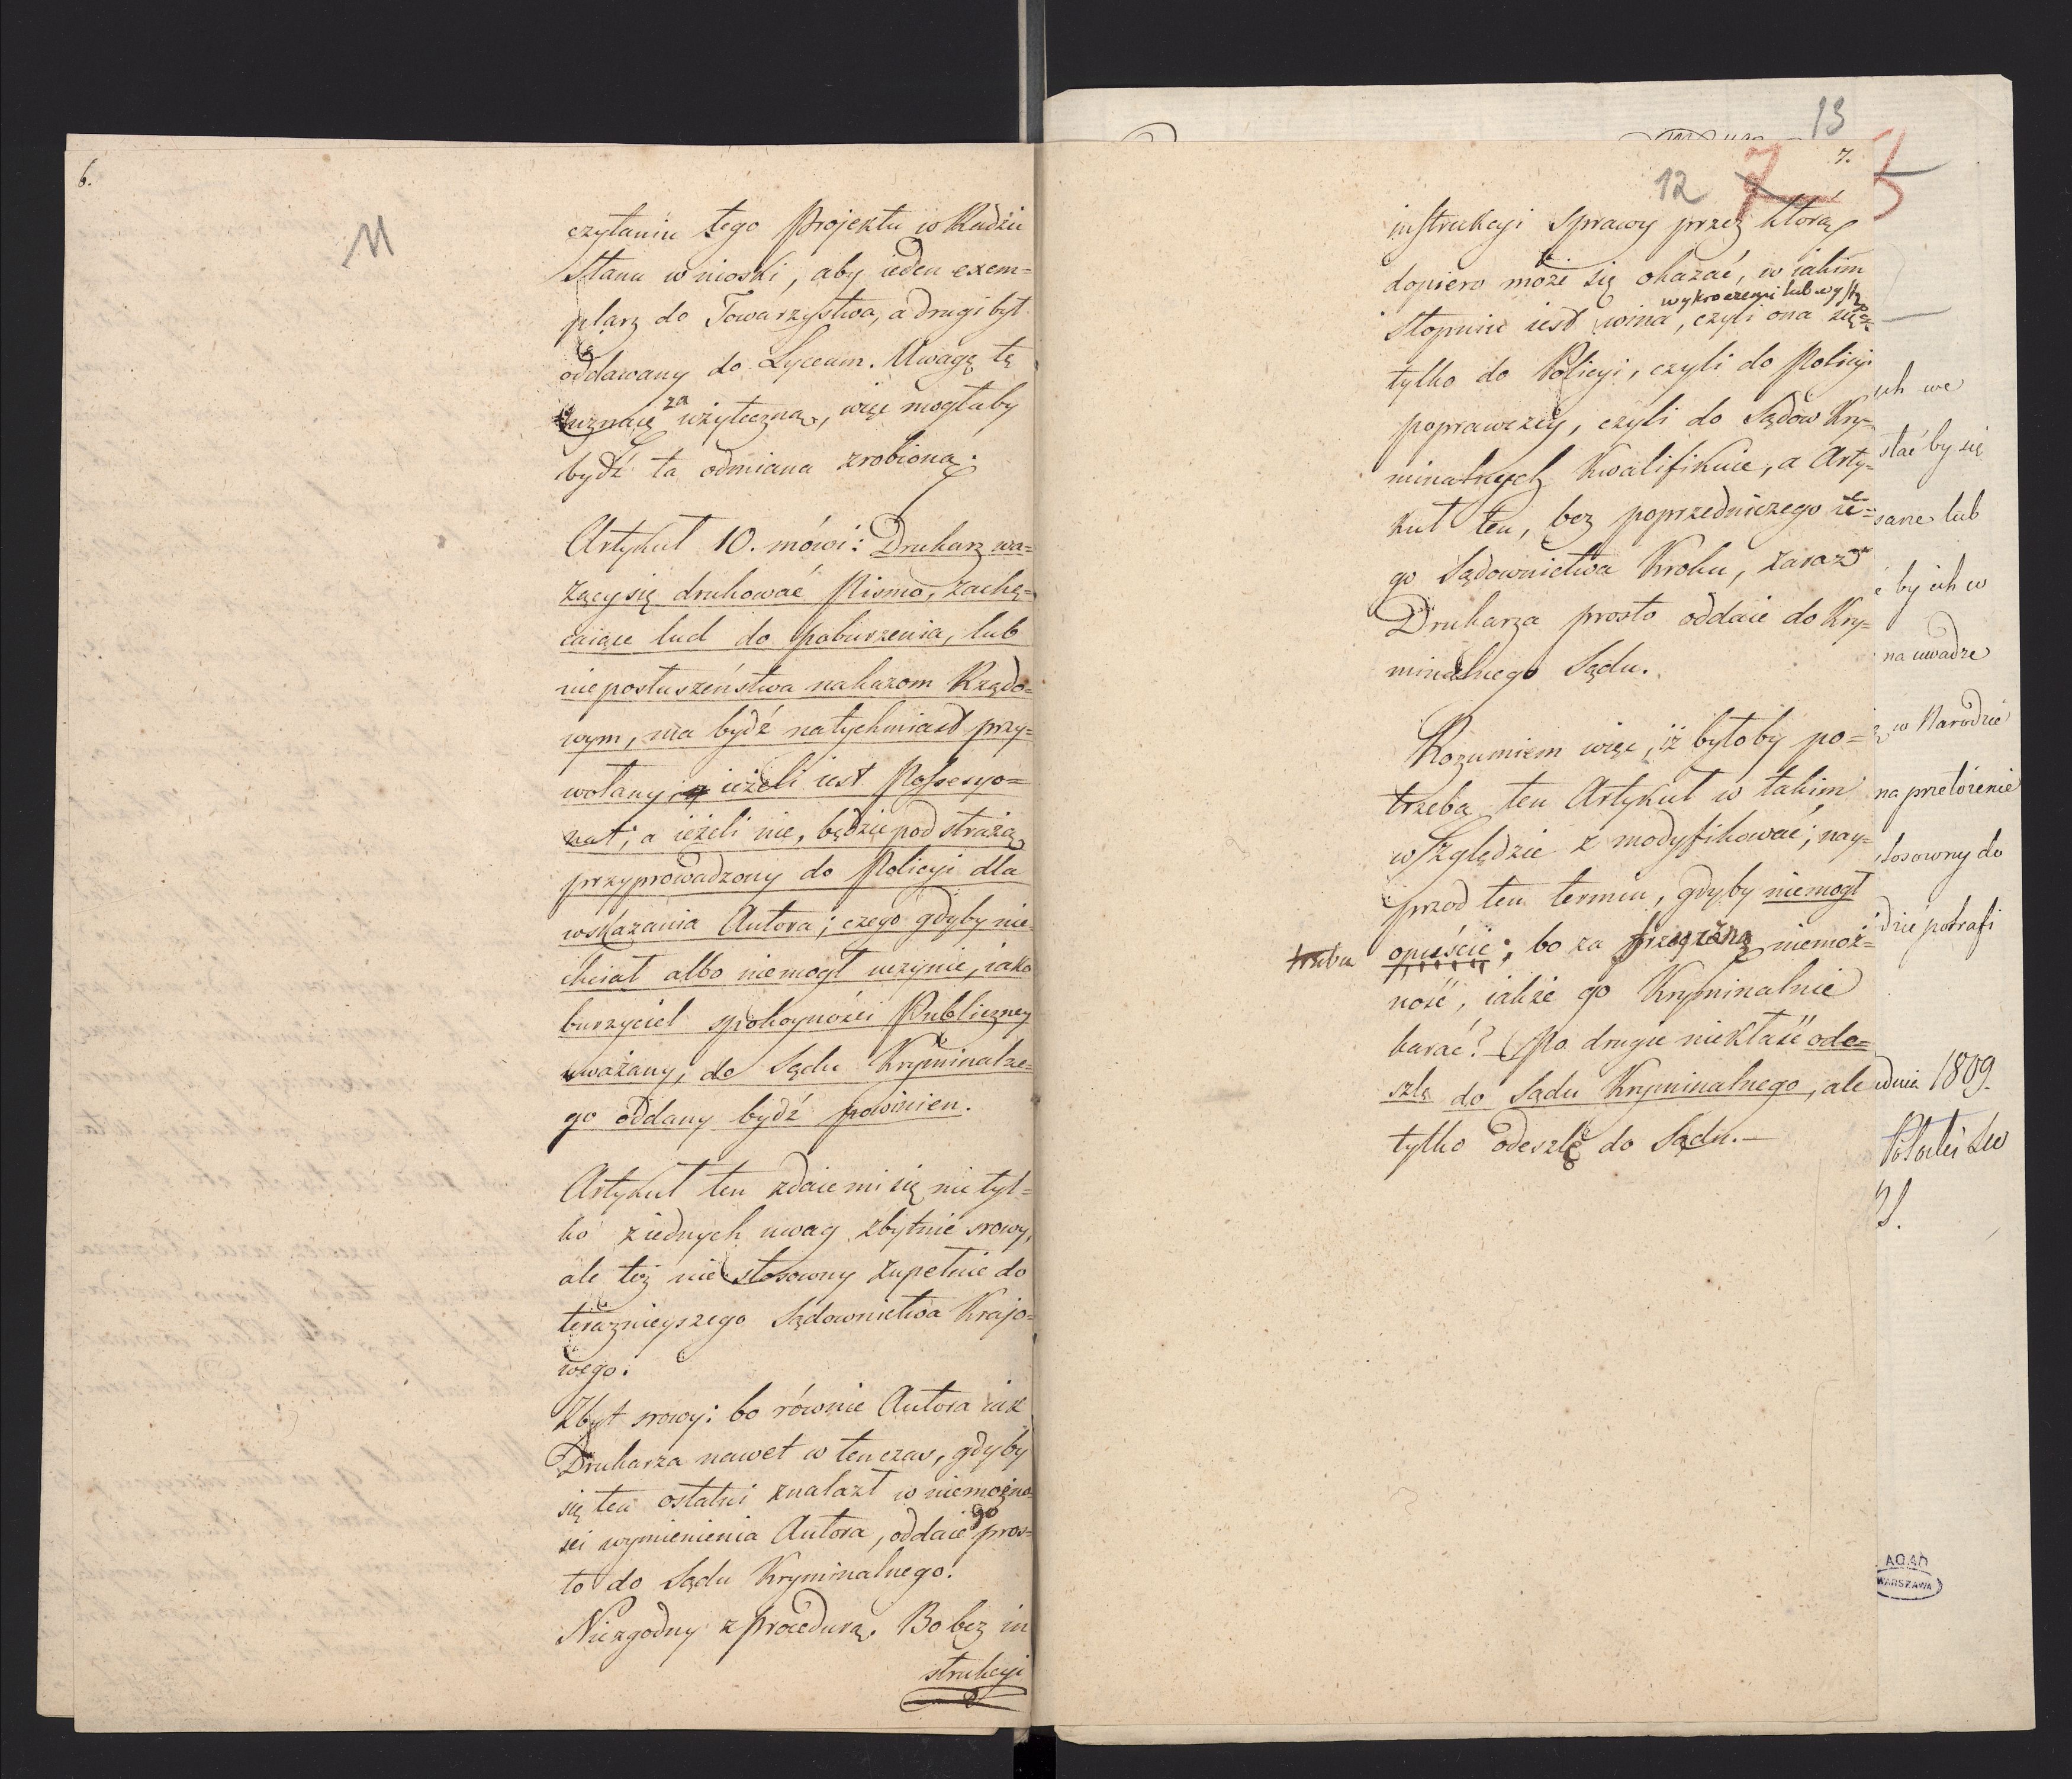 6.
11
czytaniu tego Projektu w Radzie
Stanu wnioski, aby ieden exem=
plarz do Towarzystwa, a drugi był
oddawany do Lyceum. Uwagę tę
uznaię za użyteczną, więc mogłaby
bydź ta odmiana zrobioną.
Artykuł 10. mówi: Drukarz wa=
żący się drukować Pismo, zachę=
caiące lud do poburzenia, lub
nieposłuszeństwa nakazom Rządo=
wym, ma bydź natychmiast przy=
wołany, ieżeli iest Possesyo=
nat; a ieżeli nie, będzie pod strażą
przyprowadzony do Policyi dla
wskazania Autora; czego gdyby nie
chciał albo niemogł uczynić, iako
burzyciel spokoyności Publiczney
uważany, do Sądu Kryminalne=
go oddany bydź powinien.
Artykuł ten zdaie mi się nie tyl=
ko z iednych uwag zbytnie srowy,
ale też nie stosowny zupełnie do
teraznieyszego Sądownictwa Krajo=
wego.
Zbyt srowy: bo równie Autora iak
Drukarza nawet w ten czas, gdyby
się ten ostatni znalazł w niemożno
ści wymienienia Autora, oddaie go pros=
to do Sądu Kryminalnego.
Niezgodny z procedurą. Bo bez in
strukcyi
13
12
7
7.
instrukcyi sprawy przez którą
dopiero może się okazać, w iakim
wykroczeni lub wystę
Stopniu iest wina, czyli ona się
tylko do Policyi, czyli do Policyi
poprawczey, czyli do Sądów Kry=
minalnych kwalifikuie, a Arty=
kuł ten, bez poprzedniczego te=
go Sądownictwa Kroku, zaraz
Drukarza prosto oddaie do Kry=
minalnego Sądu.
Rozumiem więc, iż byłoby po=
trzeba ten Artykuł w takim
względzie zmodyfikować; nay=
przod ten termin, gdyby niemogł
trzeba opuścić; bo za fizyczną niemoż=
ność, iakże go Kryminalnie
karać? Po drugie niekłaść ode=
szlą do Sądu Kryminalnego, ale
tylko odeszlę do Sądu.
ich we
stać by się
sane lub
by ich w
na uwadze
w Narodzie
na przełożenie
stosowny do
dzie potrafi
udnia 1809.
AGAD
WARSZAWA